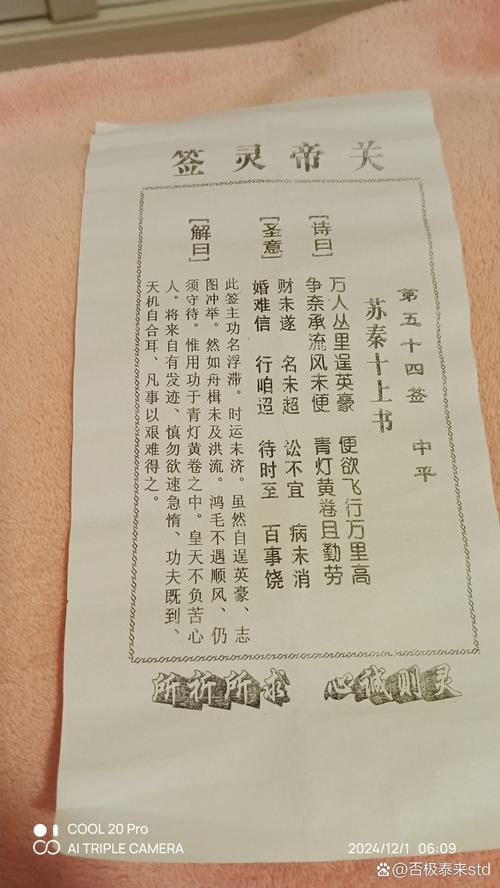 关帝灵签
第五十四签 中平
苏秦十上书
[诗曰]
万人丛里逞英豪 便欲飞行万里高
争奈承流风未便 青灯黄卷且勤劳
[圣意]
财未遂 名未超 讼不宜 病未消
婚难信 行咱迢 待时至 百事饶
[解曰]
此签主功名浮滞。时运未济。虽然自逞英豪、志
图冲举。然如舟楫未及洪流。鸿毛不遇顺风、仍
须守待。惟用功于青灯黄卷之中。皇天不负苦心
人。将来自有发迹、慎勿欲速急惰、功夫既到、
天机自合耳、凡事以艰难得之。
所祈所求 心诚则灵
COOL 20 Pro
AI TRIPLE CAMERA
2024/12/1 06:09
@否极泰来std